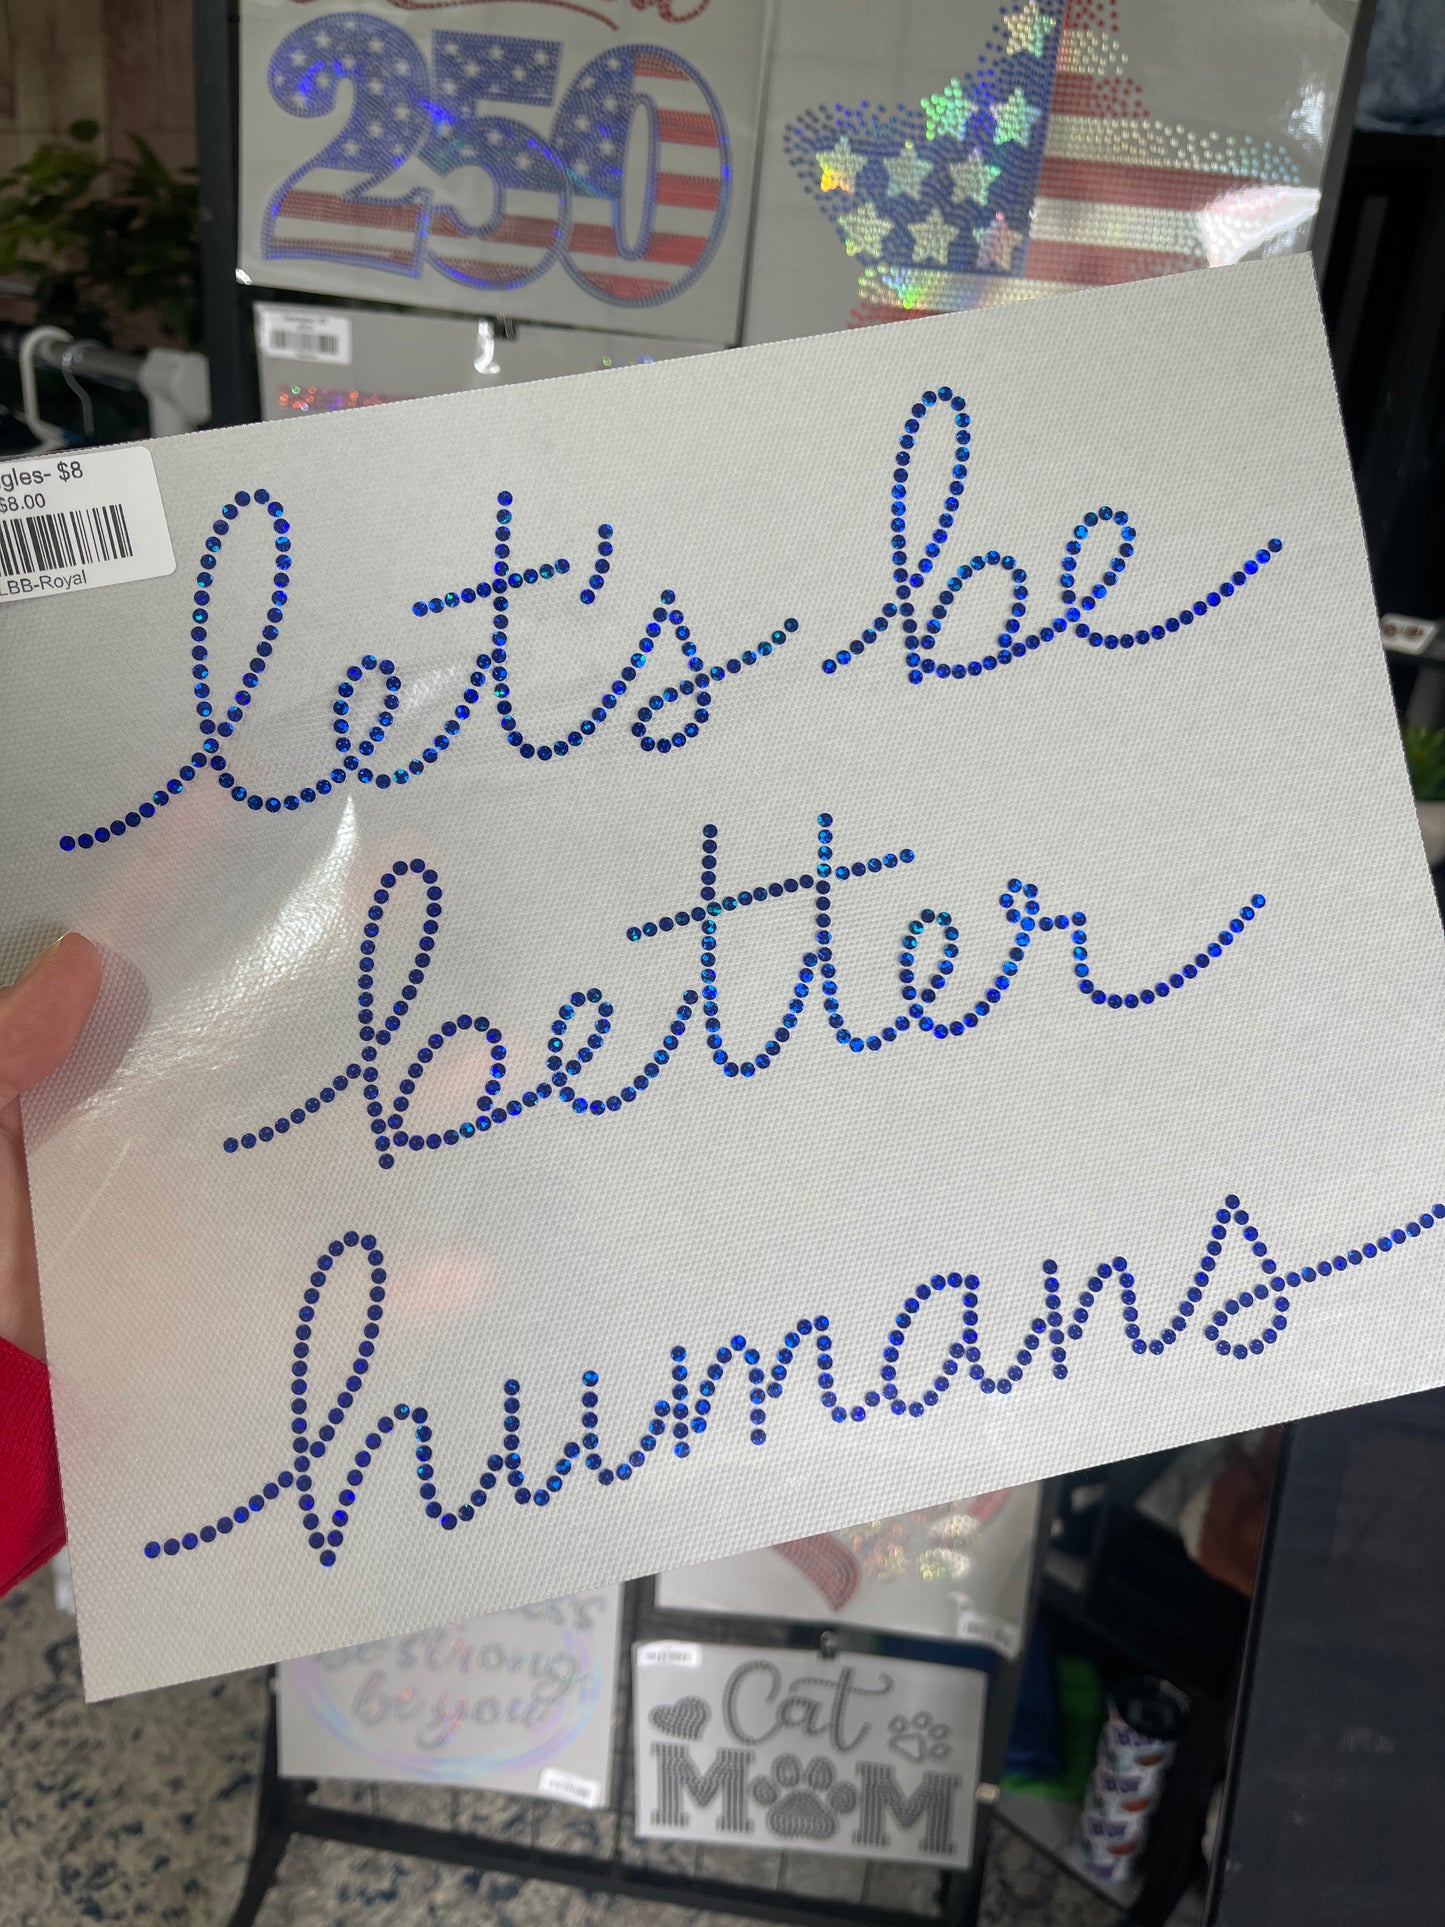 250
gles- $8
$8.00
LBB-Royal
let's be
better
humans
be strong
be you
Cat
MOM